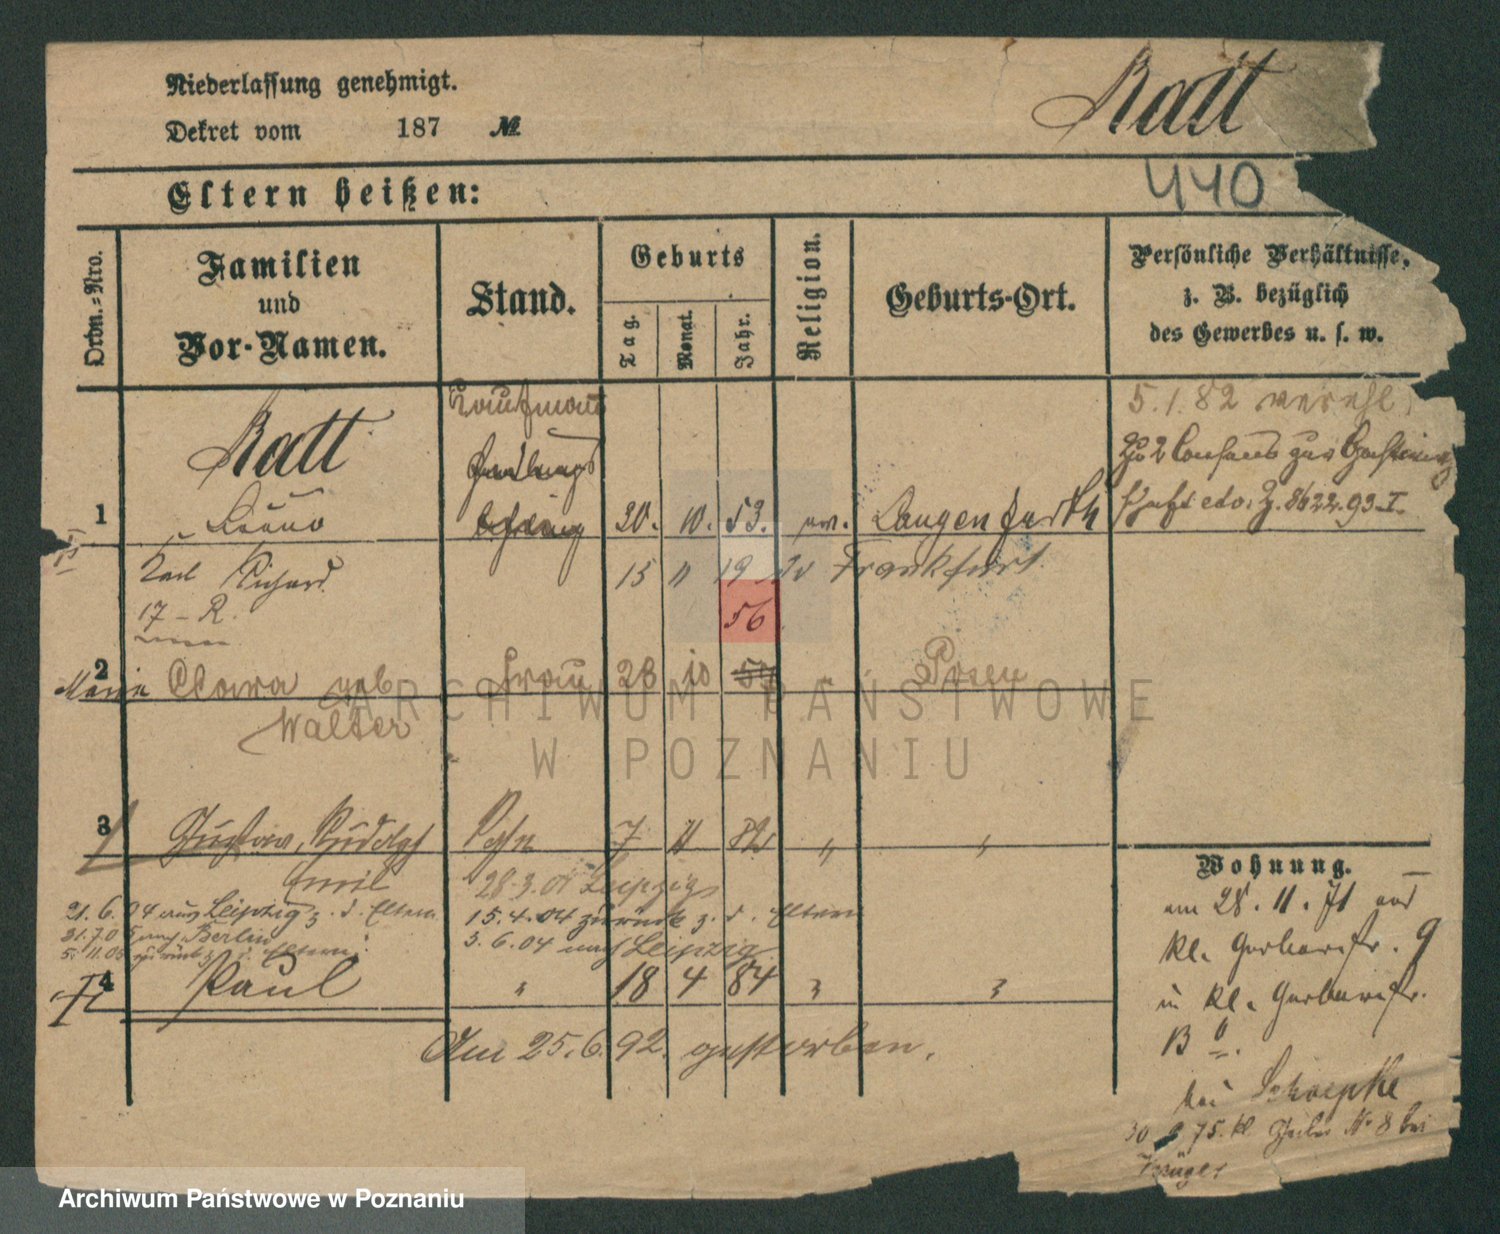 Niederlassung genehmigt.
Dekret vom 187 №
Ratt
440
Eltern heißen:
Ordn.-Nro.
Familien
und
Vor-Namen.
Stand.
Geburts
Tag.
Monat.
Jahr.
Religion.
Geburts-Ort.
Persönliche Verhältnisse,
z. B. bezüglich
des Gewerbes u. s. w.
Kaufmann
5.1.82 verehl.
Ratt
Handlungs
1 Bruno 20. 10. 53. ev. Langenfurth
8622.93.I.
Karl Richard 15 11 19 Frankfurt
17 - R.
56
2 Marie Clara geb Frau 28 10 54 " Posen
Walter
3 Gustav, Rudolph Sohn 7 11 82 " "
Emil 28.3.01 Leipzig
21.6.04 aus Leipzig z. d. Eltern 15.4.04 zurück z. d. Eltern
31.7.05 nach Berlin 3.6.04 nach Leipzig
5.11.05 zurück z. d. Eltern.
4 Paul " 18 4 84 " "
Am 25.6.92. gestorben.
Wohnung.
am 28.11.71 aus
kl. Gerberstr. 9
in kl. Gerberstr.
bei Schoepke
75. kl. № 8 bei
Krüger
ARCHIWUM PAŃSTWOWE
W POZNANIU
Archiwum Państwowe w Poznaniu